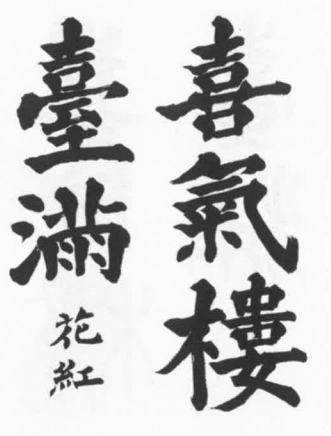 喜氣樓
臺滿
花紅